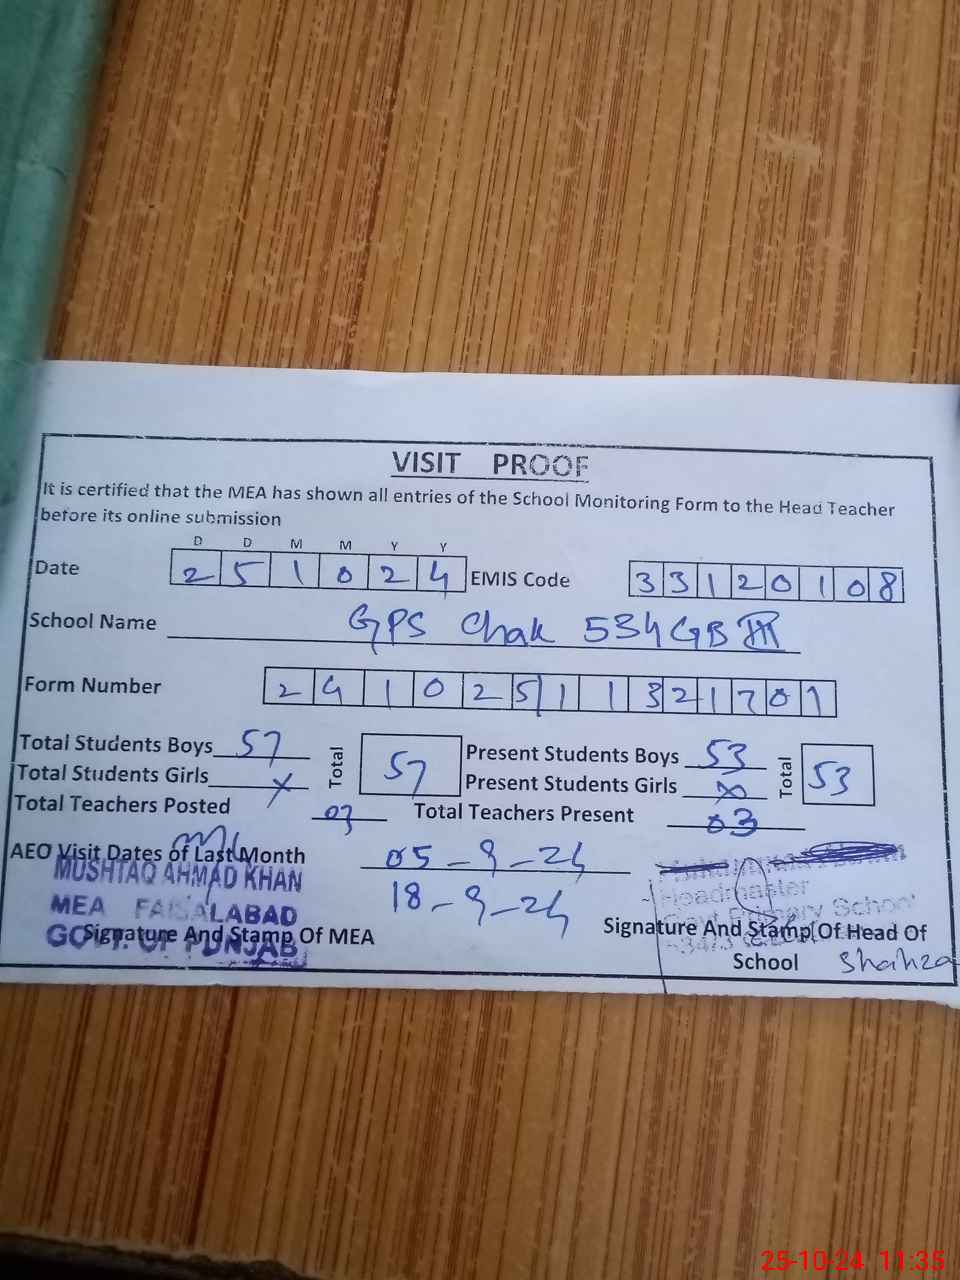 VISIT PROOF
It is certified that the MEA has shown all entries of the School Monitoring Form to the Head Teacher
before its online submission
D D M M Y Y
Date 2 5 1 0 2 4 EMIS Code 3 3 1 2 0 1 0 8
School Name GPS Chak 534 GB III
Form Number 2 4 1 0 2 5 1 1 3 2 1 7 0 1
Total Students Boys 57 Total 57 Present Students Boys 53 Total 53
Total Students Girls X Present Students Girls X
Total Teachers Posted 03 Total Teachers Present 03
AEO Visit Dates of Last Month 05-9-24
MUSHTAQ AHMAD KHAN
18-9-24
MEA FAISALABAD
GOVT. OF PUNJAB
Signature And Stamp Of MEA
Headmaster
Govt Primary School
Signature And Stamp Of Head Of
School
25-10-24 11:35